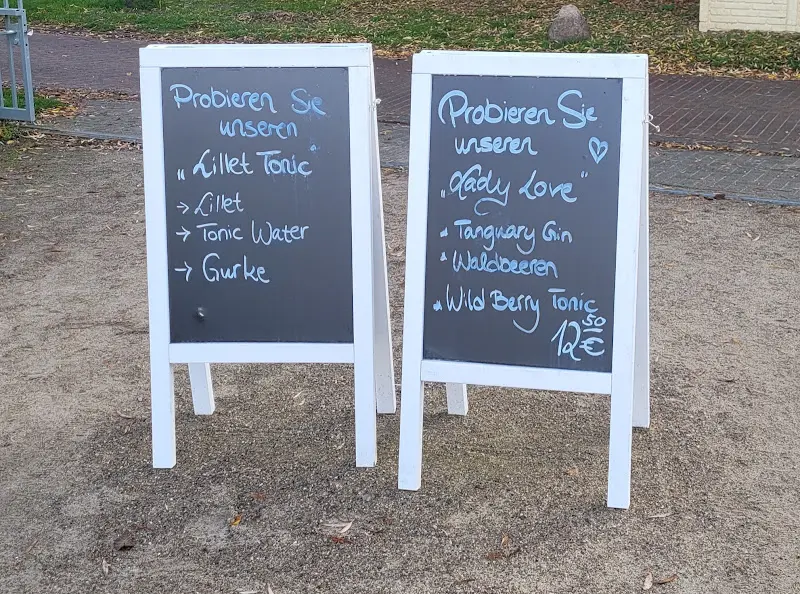 Probieren Sie
unseren
„Lillet Tonic"
→ Lillet
→ Tonic Water
→ Gurke
Probieren Sie
unseren
„Lady Love"
* Tanqu­ary Gin
* Waldbeeren
* Wild Berry Tonic
12 50 €